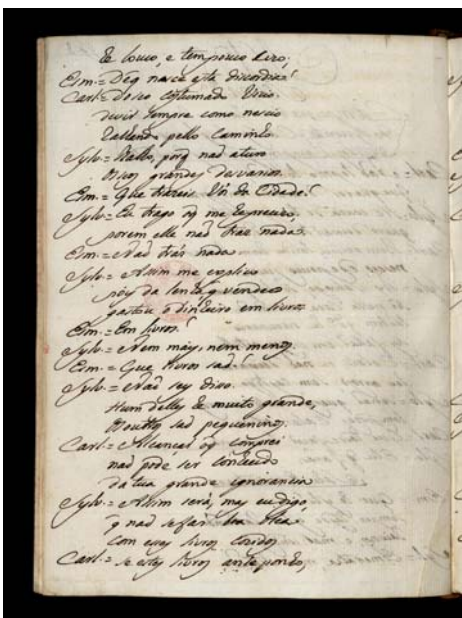 he louco, e tem pouco
Esm.= De q nasce esta discordia?
Carl.= Do seo costumado Vicio.
devir sempre como nescio
pello Caminho
Sylv.= porq naõ aturo
os seos grandes desvarios.
Esm.= Que trazeis Vós da Cidade?
Sylv.= Eu trago oq me he precizo,
porem elle naõ traz nada.
Esm.= Naõ trás nada
Sylv.= Assim me explico
pois da lenha q vendeo
gastou o dinheiro em livros
Esm.= Em livros?
Sylv.= Nem mais, nem menos
Esm.= Que livros saõ?
Sylv.= Naõ sey disso.
Hum delles he muito grande,
Os outros saõ pequeninos.
Carl.= Alcançar oq comprei
naõ pode ser concedido
da tua grande ignorancia
Sylv.= Assim será, mas eu digo,
q naõ se faz boa
com esses livros cozidos
Carl.= Se estes livros